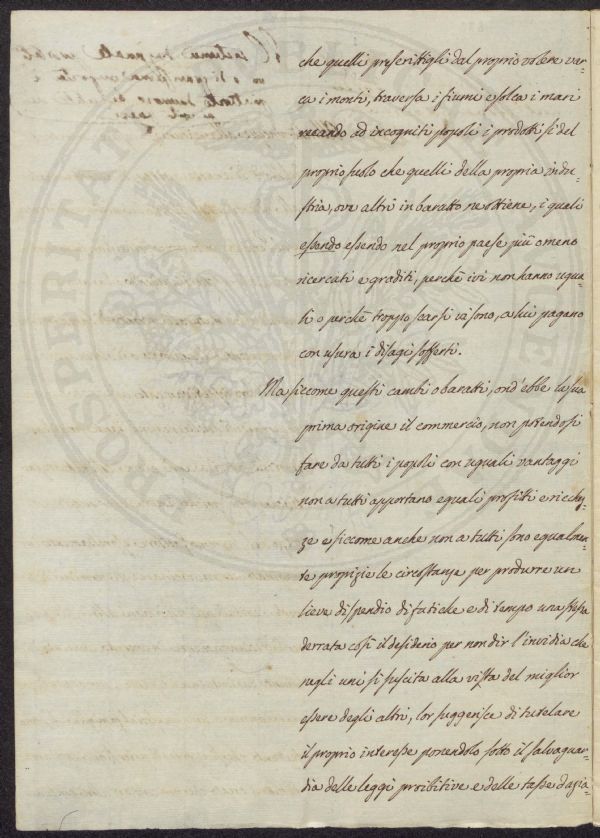 che quelli prescrittigli dal proprio volere var-
ca i monti, traversa i fiumi e solca i mari
recando ad incogniti popoli i prodotti sì del
proprio suolo che quelli della propria indu-
stria, ove altri in baratto ne ottiene, i quali
essendo essendo nel proprio paese più o meno
ricercati e graditi, perchè ivi non hanno ugua-
li o perchè troppo scarsi vi sono, a lui pagano
con usura i disagi sofferti.
Ma siccome questi cambi o baratti, ond'ebbe la sua
prima origine il commercio, non potendosi
fare da tutti i popoli con uguali vantaggi
non a tutti apportano eguali profitti e ricchez-
ze e siccome anche non a tutti sono egualmen-
te propizie le circostanze per produrre un
lieve dispendio di fatiche e di tempo una stessa
derrata così il desiderio per non dir l'invidia che
negli uni si suscita alla vista del miglior
essere degli altri, lor suggerisce di tutelare
il proprio interesse ponendolo sotto il salvaguar-
dia delle leggi proibitive e delle tasse dazia-
PROSPERITATI